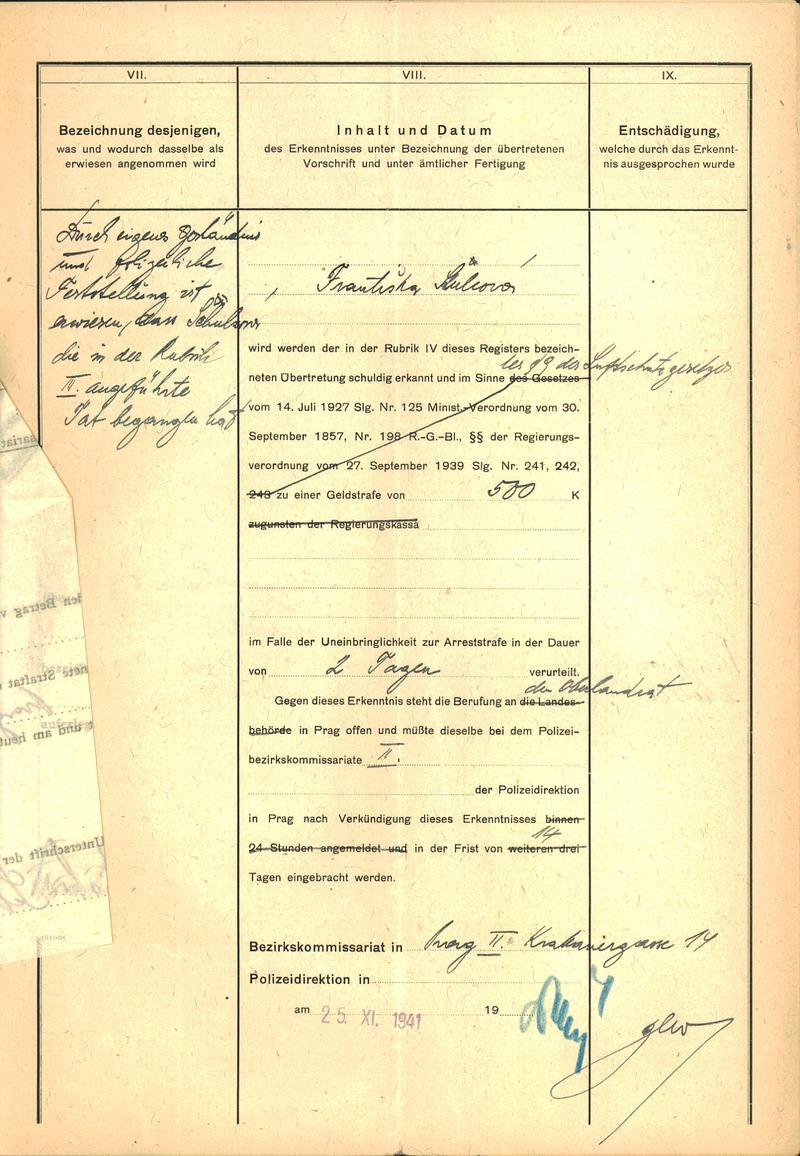 VII.
VIII.
IX.
Bezeichnung desjenigen,
was und wodurch dasselbe als
erwiesen angenommen wird
Inhalt und Datum
des Erkenntnisses unter Bezeichnung der übertretenen
Vorschrift und unter ämtlicher Fertigung
Entschädigung,
welche durch das Erkennt-
nis ausgesprochen wurde
Durch eigenes Geständnis
und polizeiliche
Feststellung ist
erwiesen, dass
die in der Rubrik
II. angeführte
Tat begangen hat
Františka
wird werden der in der Rubrik IV dieses Registers bezeich-
des §9 des Luftschutzgesetzes
neten Übertretung schuldig erkannt und im Sinne des Gesetzes
vom 14. Juli 1927 Slg. Nr. 125 Minist.-Verordnung vom 30.
September 1857, Nr. 198 R.-G.-Bl., §§ der Regierungs-
verordnung vom 27. September 1939 Slg. Nr. 241, 242,
243 zu einer Geldstrafe von 500 K
zugunsten der Regierungskassa
im Falle der Uneinbringlichkeit zur Arreststrafe in der Dauer
von 2 Tagen verurteilt.
den Oberlandrat
Gegen dieses Erkenntnis steht die Berufung an die Landes-
behörde in Prag offen und müßte dieselbe bei dem Polizei-
bezirkskommissariate II.
der Polizeidirektion
in Prag nach Verkündigung dieses Erkenntnisses binnen
14
24 Stunden angemeldet und in der Frist von weiteren drei
Tagen eingebracht werden.
Bezirkskommissariat in Prag II. Krakauergasse 14
Polizeidirektion in
am 25. XI. 1941 19
den Betrag v
nete Straftat
und am heut
Unterschrift der